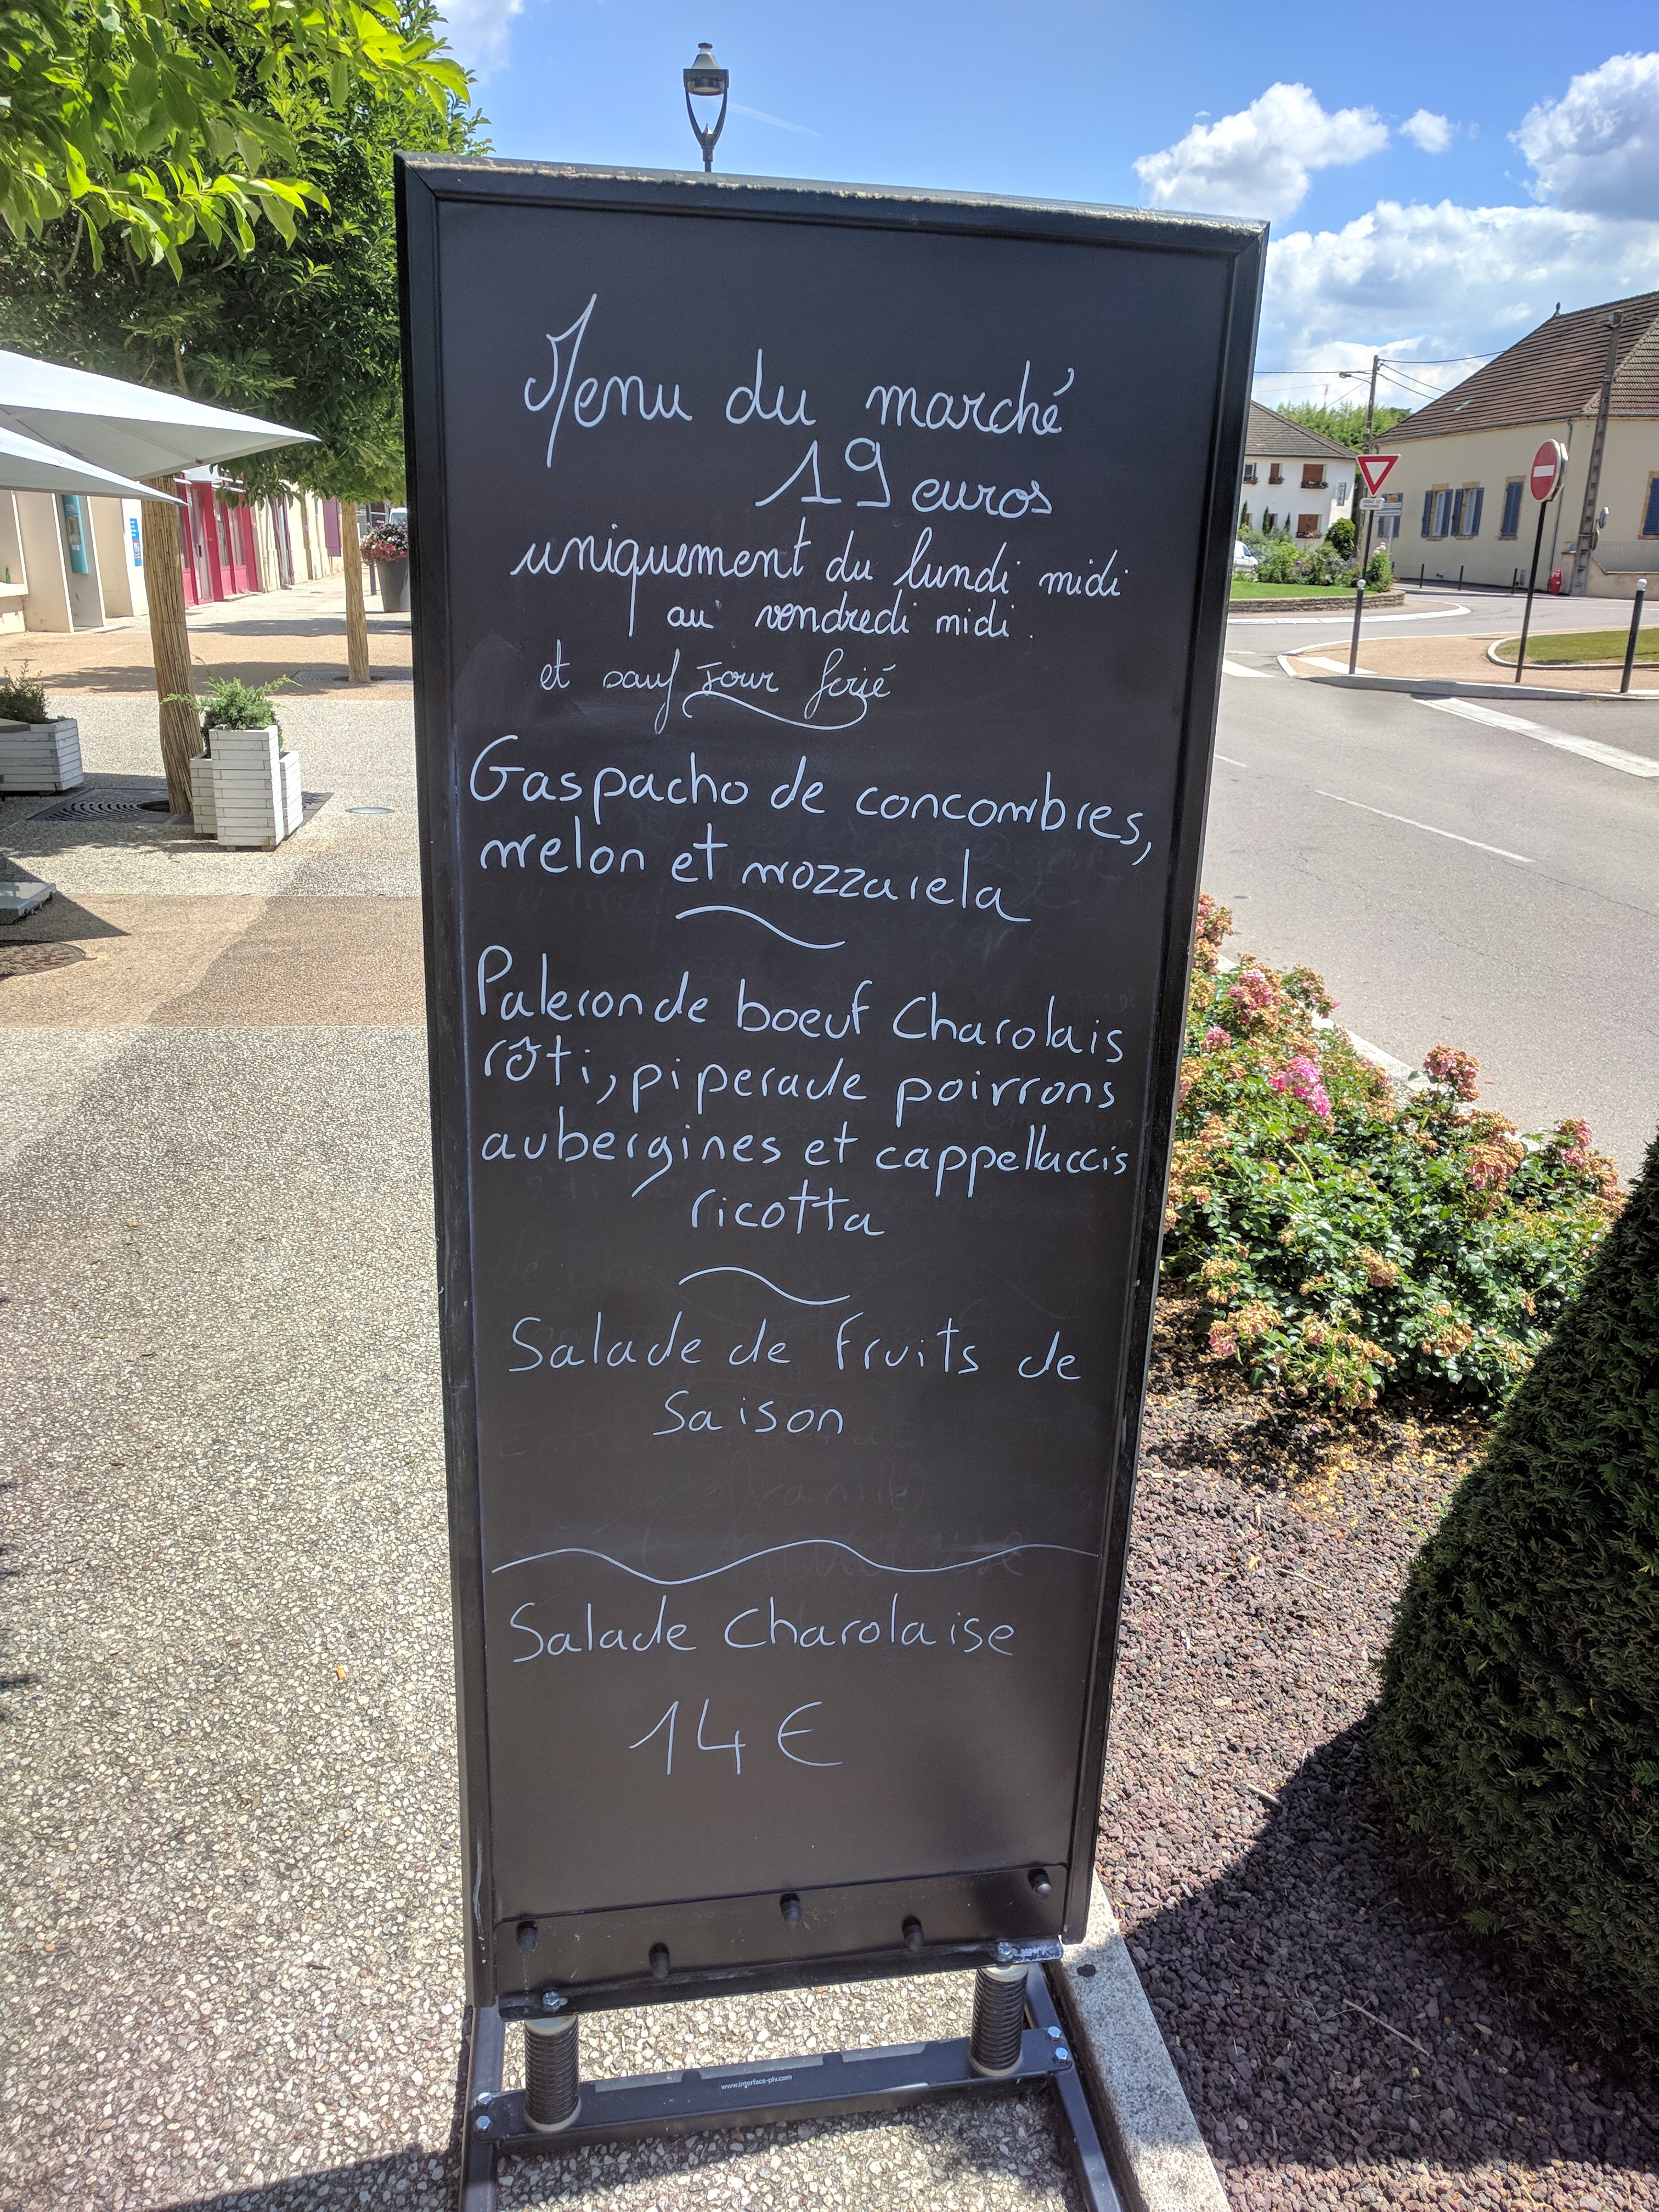 Menu du marché
19 euros
uniquement du lundi midi
au vendredi midi.
et sauf jour ferié
Gaspacho de concombres,
melon et mozzarela
Paleron de boeuf Charolais
rôti, piperade poivrons
aubergines et cappellaccis
ricotta
Salade de fruits de
Saison
Salade Charolaise
14€
www.interface-plv.com